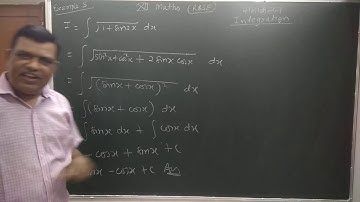 Example 3
XII Maths (RBSE)
Integration
I = ∫ √(1 + sin2x) dx
= ∫ √(sin²x + cos²x + 2 sinx cosx) dx
= ∫ √((sinx + cosx)²) dx
∫ (sinx + cosx) dx
∫ sinx dx + ∫ cosx dx
- cosx + sinx + c
sinx - cosx + c Ans